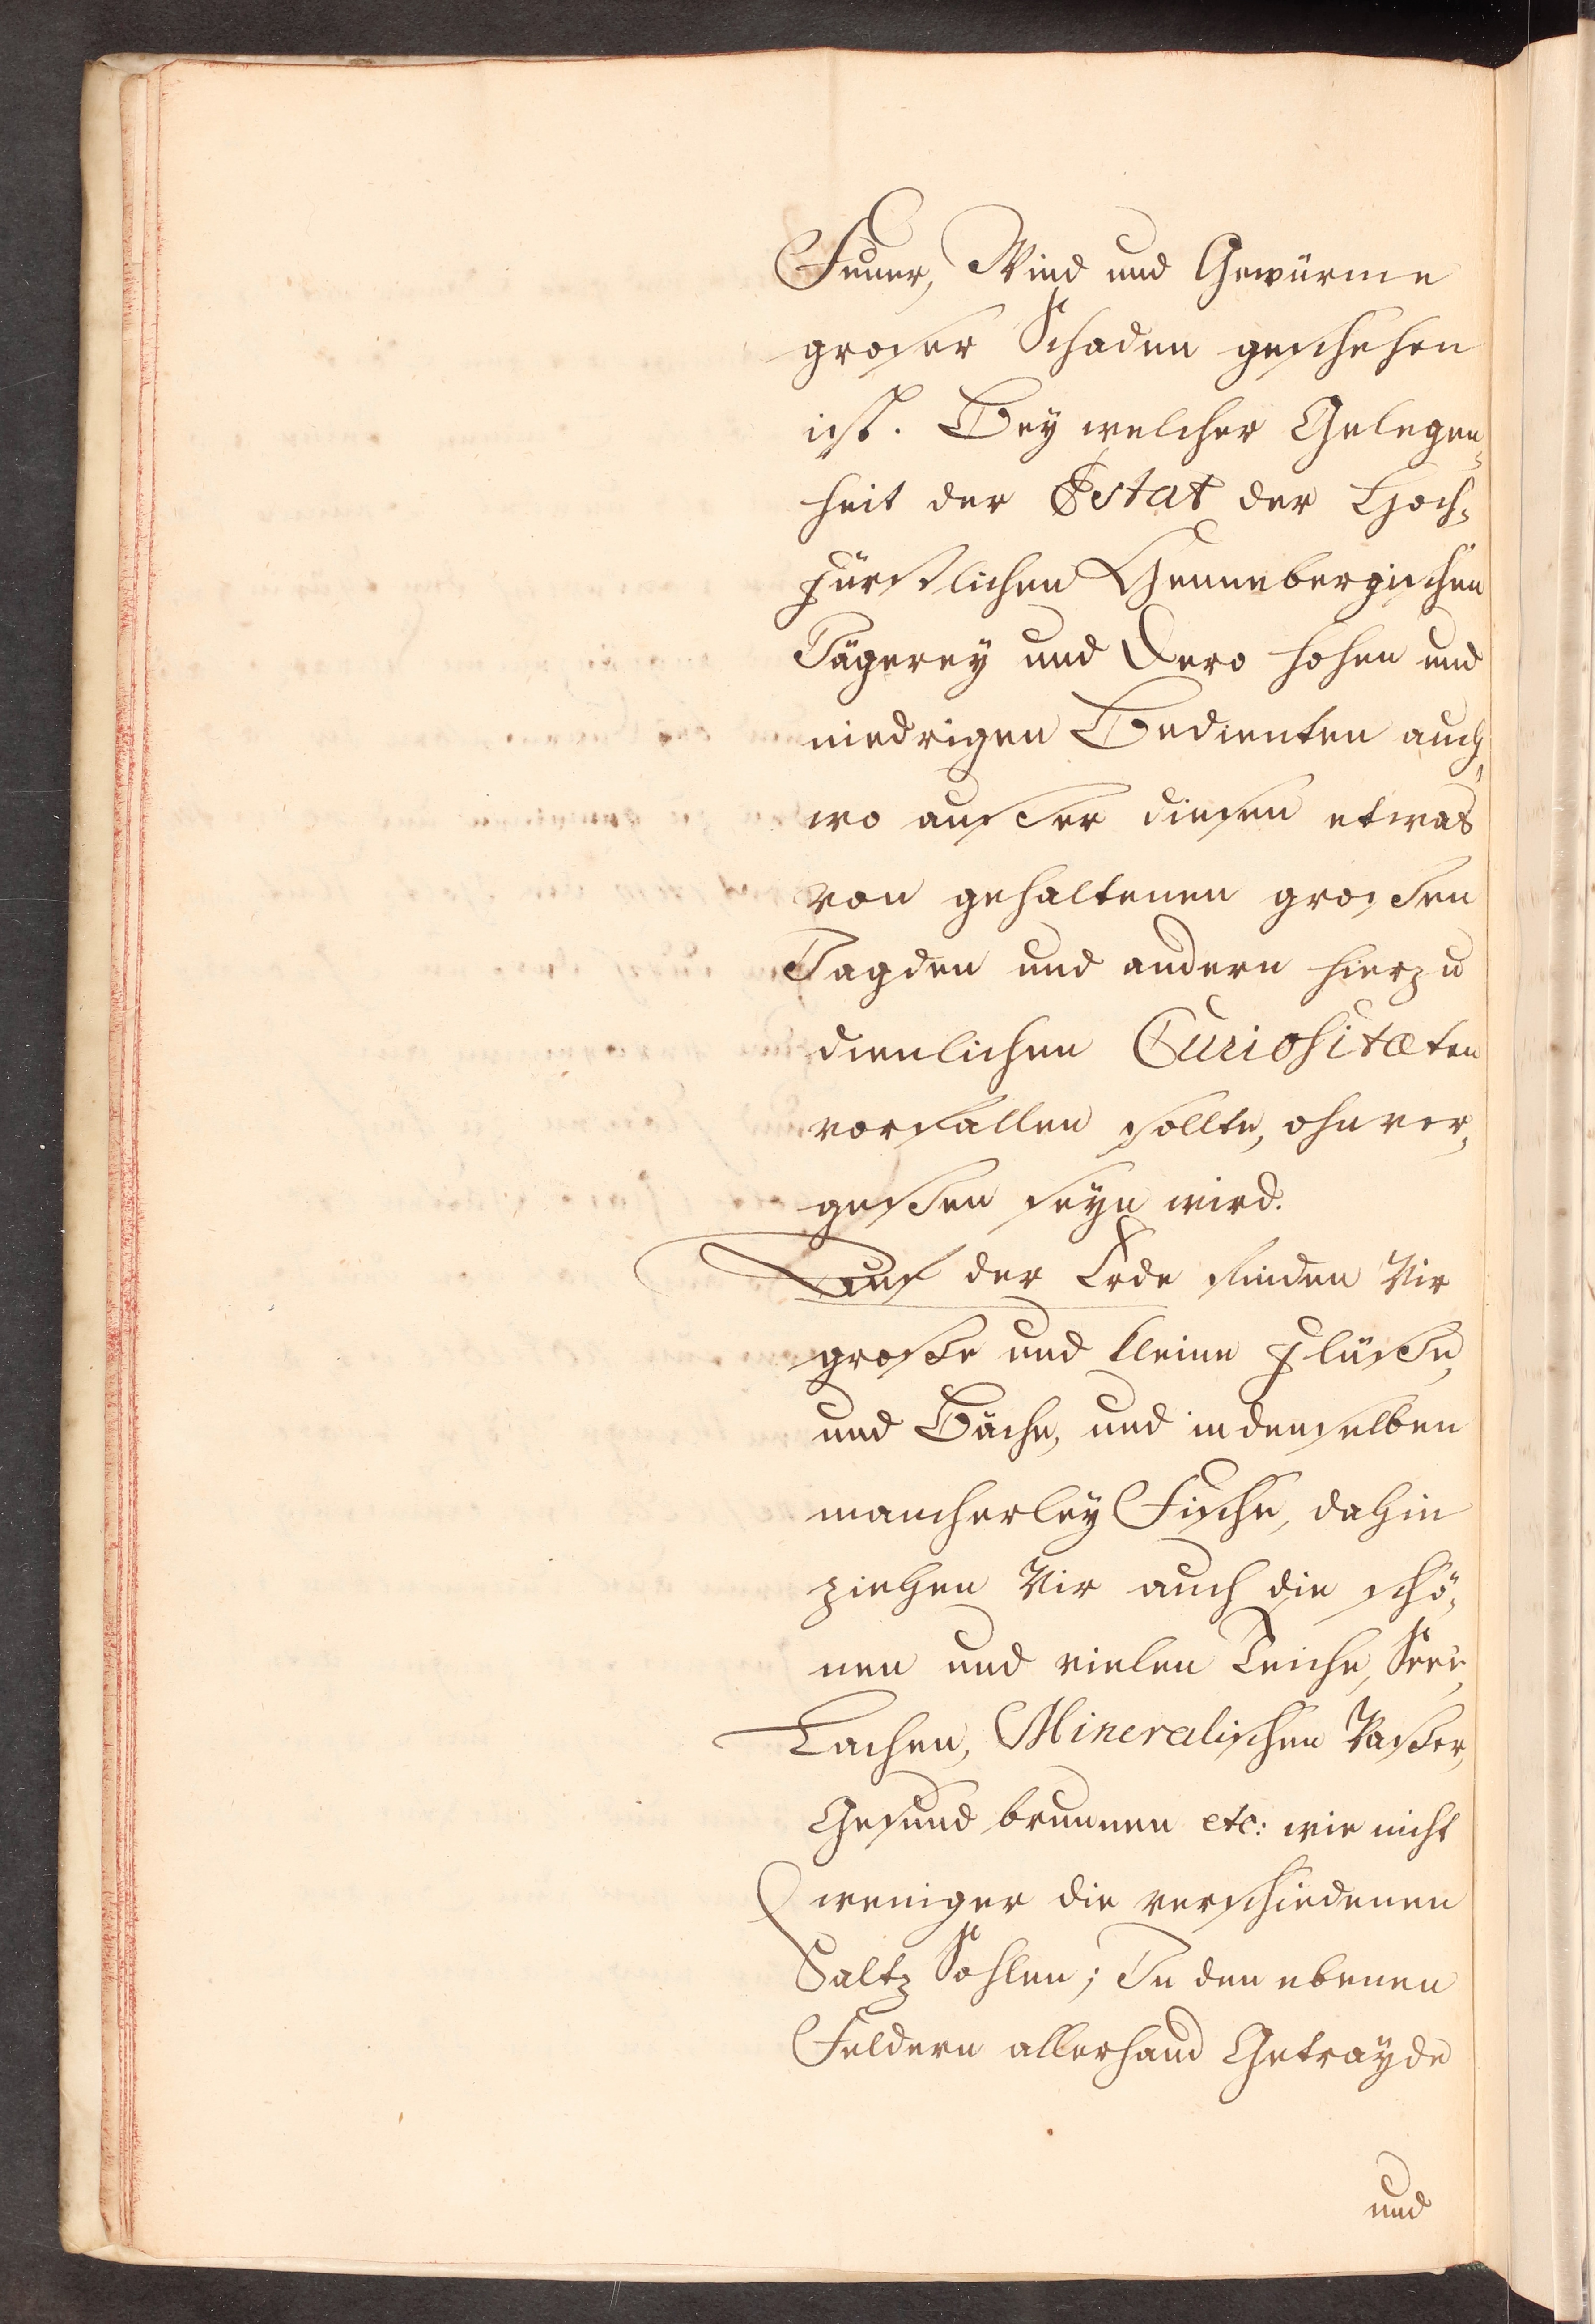 Feuer, Wind und Gewürme
groser Schaden geschehen
ist. Bey welcher Gelegen-
heit der Estat der Hoch-
Fürstlichen Hennebergischen
Jägerey und Dero hohen und
niedrigen Bedienten auch,
wo ausser diesen etwas
von gehaltenen grossen
Jagden und andern hierzu
dienlichen Curiositæten
vorfallen sollte, ohnver-
gessen seyn wird.
Auf der Erde finden Wir
grosse und kleine Flüsse,
und Bäche, und in denselben
mancherley Fische, dahin
ziehen Wir auch die schö-
nen und vielen Teiche, Seen,
Lachen, Mineralischen Wasser,
Gesundbrunnen etc: wie nicht
weniger die verschiedenen
Saltz Sohlen; In den ebenen
Feldern allerhand Getrayde
und